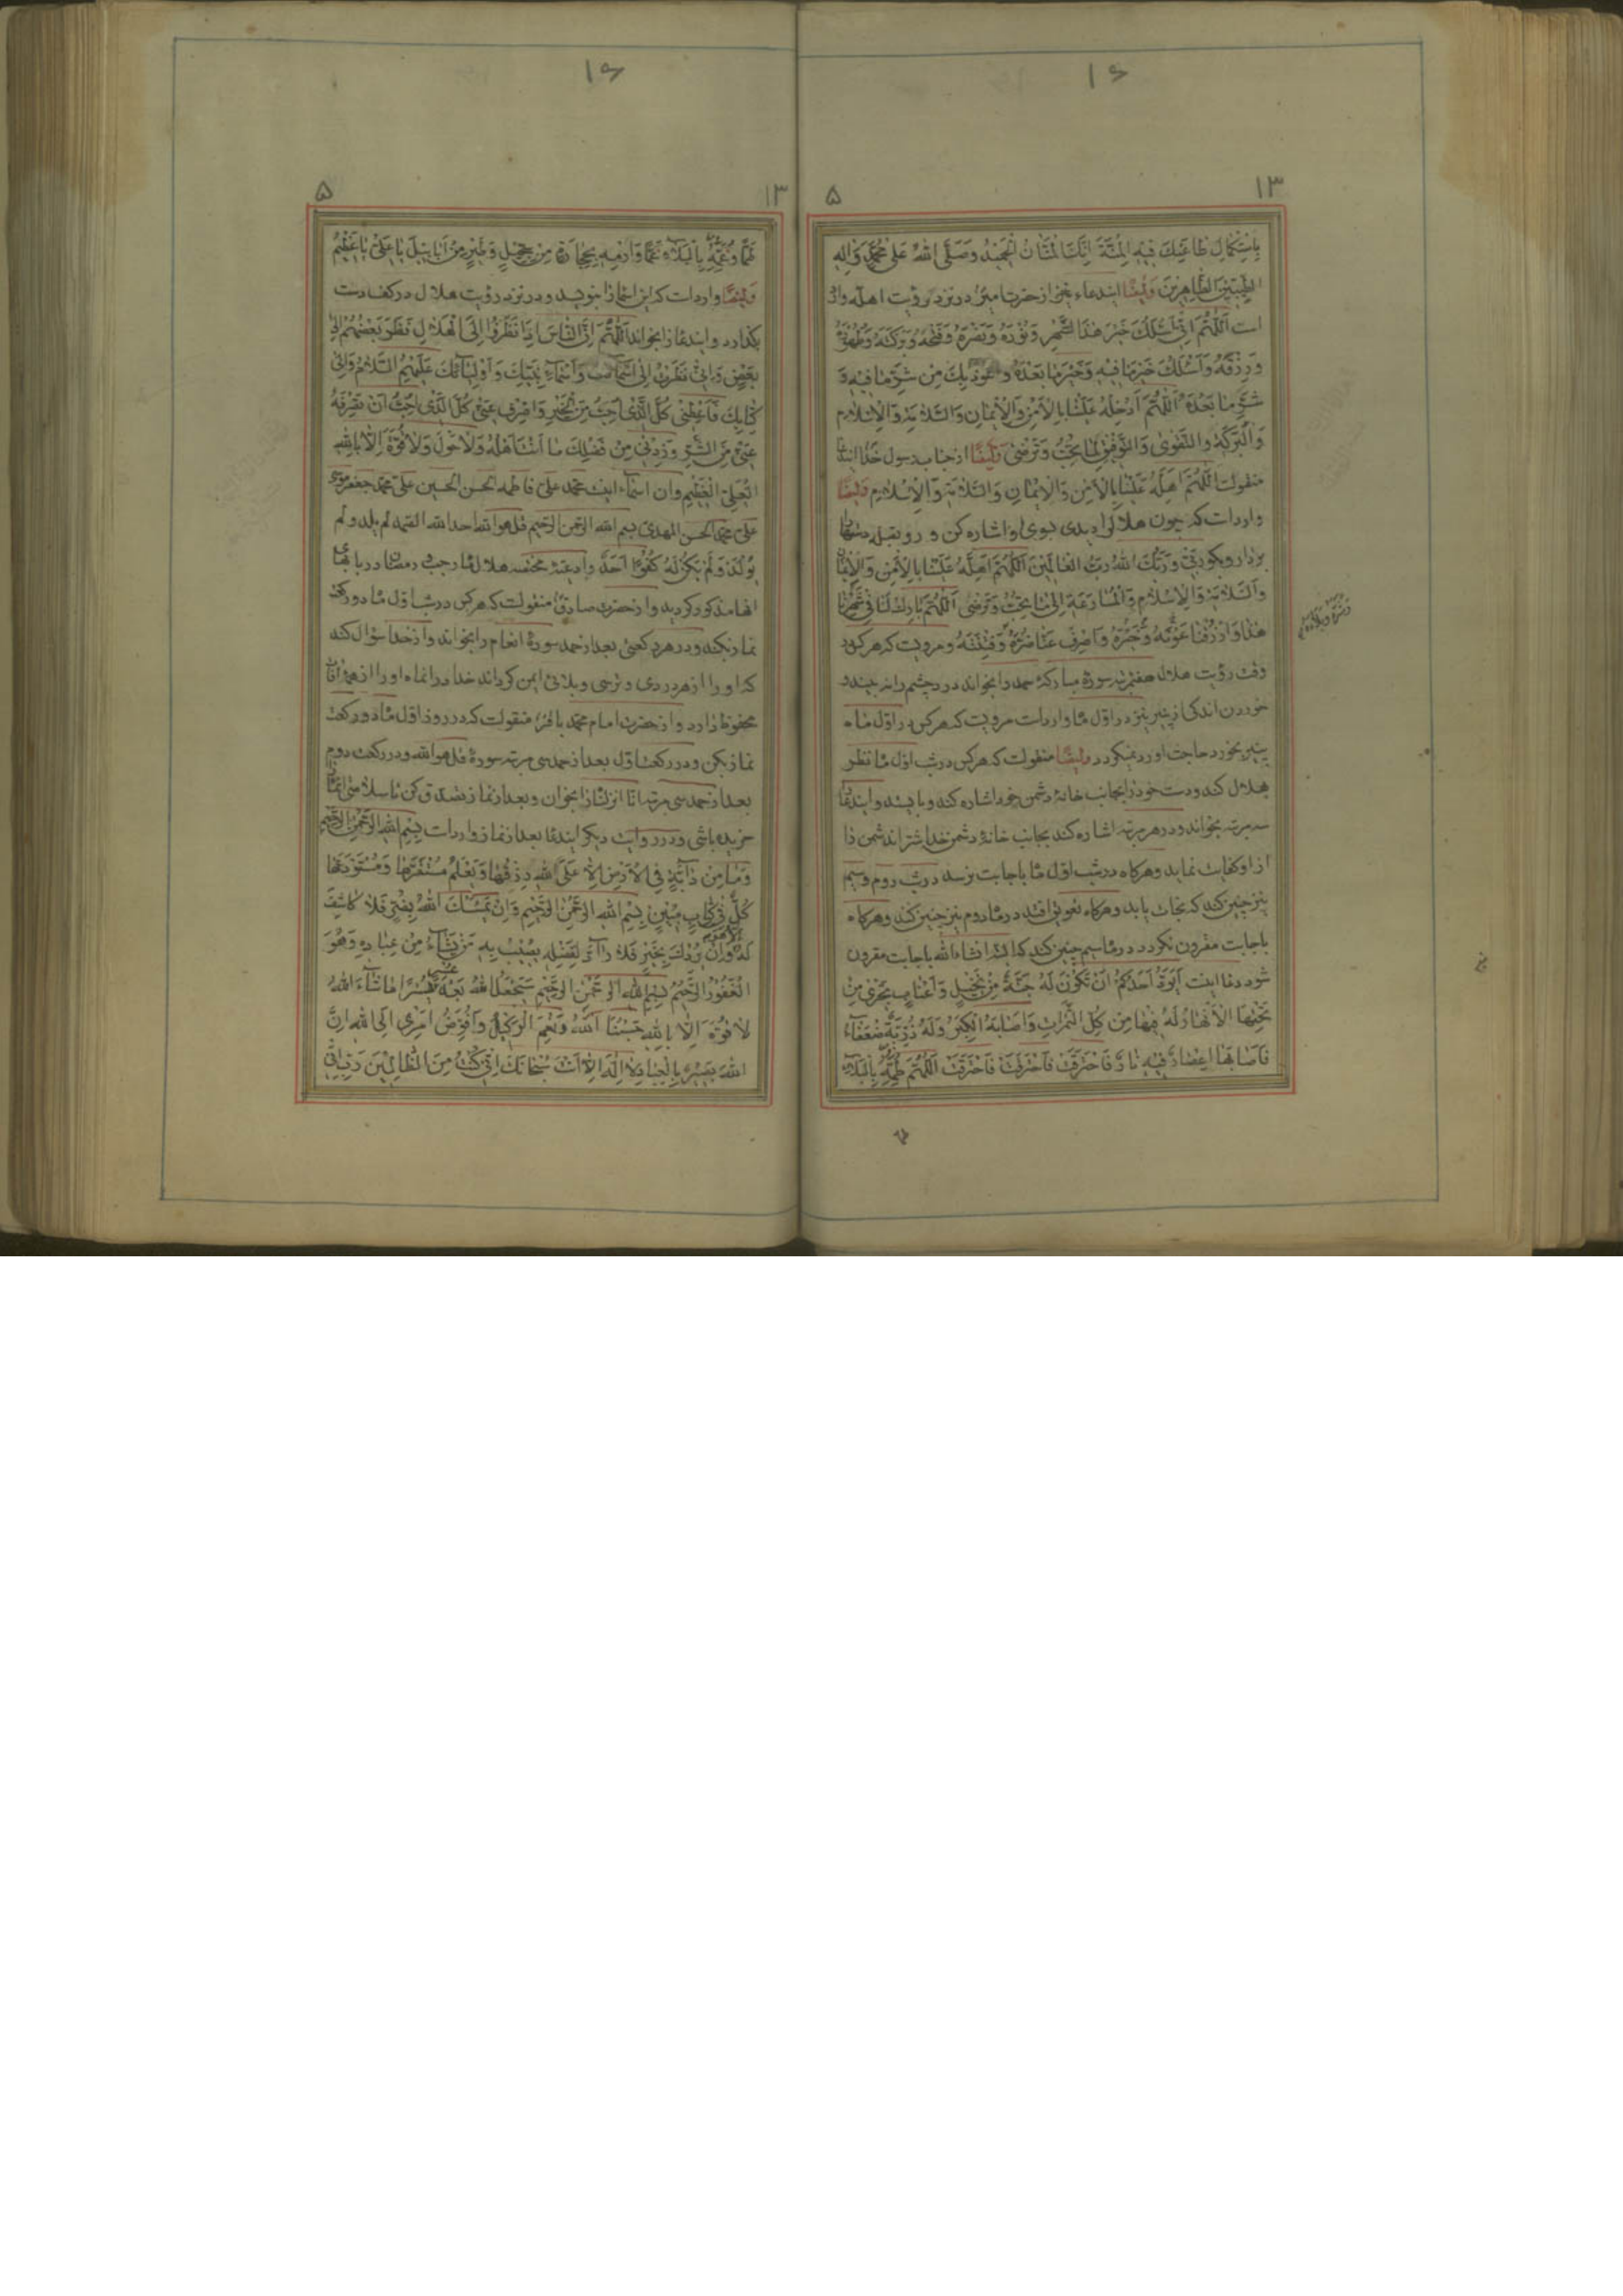 ۱۶
۱۳
۵
بِاسْتِكْمالِ طاعَتِكَ فيهِ الْمِنَّةَ اِنَّكَ الْمَنّانُ الْحَميدُ وَصَلَّى اللهُ عَلى مُحَمَّدٍ وَالِهِ
الطَّيِّبينَ الطّاهِرينَ وَايضًا ايندعاء نيز از حضرت امير در نزد رؤيت اهله وارد
است اَللّهُمَّ اِنّى اَسْئَلُكَ خَيْرَ هذَا الشَّهْرِ وَنُورَهُ وَنَصْرَهُ وَفَتْحَهُ وَبَرَكَتَهُ وَطَهُورَهُ
وَرِزْقَهُ وَاَسْئَلُكَ خَيْرَ ما فيهِ وَخَيْرَ ما بَعْدَهُ وَاَعُوذُ بِكَ مِنْ شَرِّ ما فيهِ وَ
شَرِّ ما بَعْدَهُ اَللّهُمَّ اَدْخِلْهُ عَلَيْنا بِالْاَمْنِ وَالْايمانِ وَالسَّلامَةِ وَالْاِسْلامِ
وَالْبَرَكَةِ وَالتَّقْوى وَالتَّوْفيقِ لِما تُحِبُّ وَتَرْضى وَايضًا از جناب رسول خدا ايندعا
منقولست اَللّهُمَّ اَهِلَّهُ عَلَيْنا بِالْاَمْنِ وَالْايمانِ وَالسَّلامَةِ وَالْاِسْلامِ وَايضًا
وارداست كه چون هلال را ديدى بسوى او اشاره مكن و رو بقبله دستها را
بردار وبگو رَبّى وَرَبُّكَ اللهُ رَبُّ الْعالَمينَ اَللّهُمَّ اَهِلَّهُ عَلَيْنا بِالْاَمْنِ وَالْايمانِ
وَالسَّلامَةِ وَالْاِسْلامِ وَالْمُسارَعَةِ اِلى ما تُحِبُّ وَتَرْضى اَللّهُمَّ بارِكْ لَنا فى شَهْرِنا
هذا وَارْزُقْنا عَوْنَهُ وَخَيْرَهُ وَاصْرِفْ عَنّا ضُرَّهُ وَفِتْنَتَهُ ومرويست كه هركس در
وقت رؤيت هلال هفتمرتبه سورهٔ مباركهٔ حمد را بخواند درد چشم را نه بيند و
خوردن اندكى از پنير نيز در اول ماه وارداست مرويست كه هركس در اول ماه
پنير بخورد حاجت او رد نميگردد وايضًا منقولست كه هركس در شب اول ماه نظر
بهلال كند ودست خود را بجانب خانهٔ دشمن خود اشاره كند وبايستد و ايندعا
سه مرتبه بخواند ودر هر مرتبه اشاره كند بجانب خانهٔ دشمن خدا شر اندشمن را
از او كفايت نمايد وهرگاه در شب اول ماه باجابت نرسد در شب دوم وسيم
نيز چنين كند كه نجات يابد وهرگاه تعويق افتد در ماه دوم نيز چنين كند وهرگاه
باجابت مقرون نگردد در ماه سيم چنين كند كه البته انشاءالله باجابت مقرون
شود دعا اينست اَيَوَدُّ اَحَدُكُمْ اَنْ تَكُونَ لَهُ جَنَّةٌ مِنْ نَخيلٍ وَاَعْنابٍ تَجْرى مِنْ
تَحْتِهَا الْاَنْهارُ لَهُ فيها مِنْ كُلِّ الثَّمَراتِ وَاَصابَهُ الْكِبَرُ وَلَهُ ذُرِّيَّةٌ ضُعَفاءُ
فَاَصابَها اِعْصارٌ فيهِ نارٌ فَاحْتَرَقَتْ فَاحْتَرَقَتْ فَاحْتَرَقَتْ اَللّهُمَّ طُمَّهُ بِالْبَلاءِ
۱۶
۱۳
۵
طَمًّا وَغُمَّهُ بِالْبَلاءِ غَمًّا وَارْمِهِ بِحِجارَةٍ مِنْ سِجّيلٍ وَطَيْرٍ مِنْ اَبابيلَ يا عَلِىُّ يا عَظيمُ
وَايضًا وارداست كه اين اسماء را بنويسد ودر نزد رؤيت هلال در كف دست
بگذارد وايندعا را بخواند اَللّهُمَّ اِنَّ النّاسَ اِذا نَظَرُوا اِلَى الْهِلالِ نَظَرَ بَعْضُهُمْ اِلى
بَعْضٍ وَاِنّى نَظَرْتُ اِلى اَسْمائِكَ وَاَسْماءِ نَبِيِّكَ وَاَوْلِيائِكَ عَلَيْهِمُ السَّلامُ وَاِلى
كِتابِكَ فَاَعْطِنى كُلَّ الَّذى اُحِبُّ مِنَ الْخَيْرِ وَاصْرِفْ عَنّى كُلَّ الَّذى اُحِبُّ اَنْ تَصْرِفَهُ
عَنّى مِنَ الشَّرِّ وَزِدْنى مِنْ فَضْلِكَ ما اَنْتَ اَهْلُهُ وَلا حَوْلَ وَلا قُوَّةَ اِلّا بِاللهِ
الْعَلِىِّ الْعَظيمِ وان اسماء اينست محمد على فاطمه الحسن الحسين على محمد جعفر موسى
على محمد الحسن المهدى بسم الله الرحمن الرحيم قل هو الله احد الله الصمد لم يلد ولم
يُولَدْ وَلَمْ يَكُنْ لَهُ كُفُوًا اَحَدٌ وادعيهٔ مختصه هلال ماه رجب و رمضان در بابهاى
انها مذكور گرديد واز حضرت صادق منقولست كه هركس در شب اول ماه دو ركعت
نماز بكند ودر هر ركعتى بعد از حمد سورهٔ انعام را بخواند واز خدا سؤال كند
كه او را از هر دردى و ترسى وبلائى ايمن گرداند خدا در انماه او را از همهٔ انها
محفوظ دارد واز حضرت امام محمد باقر منقولست كه در روز اول ماه دو ركعت
نماز بكن ودر ركعت اول بعد از حمد سى مرتبه سورهٔ قل هو الله ودر ركعت دوم
بعد از حمد سى مرتبه انا انزلناه را بخوان وبعد از نماز تصدق كن تا سلامتى انماه را
خريده باشى ودر روايت ديگر ايندعا بعد از نماز وارداست بِسْمِ اللهِ الرَّحْمنِ الرَّحيمِ
وَما مِنْ دابَّةٍ فِى الْاَرْضِ اِلّا عَلَى اللهِ رِزْقُها وَيَعْلَمُ مُسْتَقَرَّها وَمُسْتَوْدَعَها
كُلٌّ فى كِتابٍ مُبينٍ بِسْمِ اللهِ الرَّحْمنِ الرَّحيمِ وَاِنْ يَمْسَسْكَ اللهُ بِضُرٍّ فَلا كاشِفَ
لَهُ اِلّا هُوَ وَاِنْ يُرِدْكَ بِخَيْرٍ فَلا رادَّ لِفَضْلِهِ يُصيبُ بِهِ مَنْ يَشاءُ مِنْ عِبادِهِ وَهُوَ
الْغَفُورُ الرَّحيمُ بِسْمِ اللهِ الرَّحْمنِ الرَّحيمِ سَيَجْعَلُ اللهُ بَعْدَ عُسْرٍ يُسْرًا ما شاءَ اللهُ
لا قُوَّةَ اِلّا بِاللهِ حَسْبُنَا اللهُ وَنِعْمَ الْوَكيلُ وَاُفَوِّضُ اَمْرى اِلَى اللهِ اِنَّ
اللهَ بَصيرٌ بِالْعِبادِ لا اِلهَ اِلّا اَنْتَ سُبْحانَكَ اِنّى كُنْتُ مِنَ الظّالِمينَ رَبِّ اِنّى